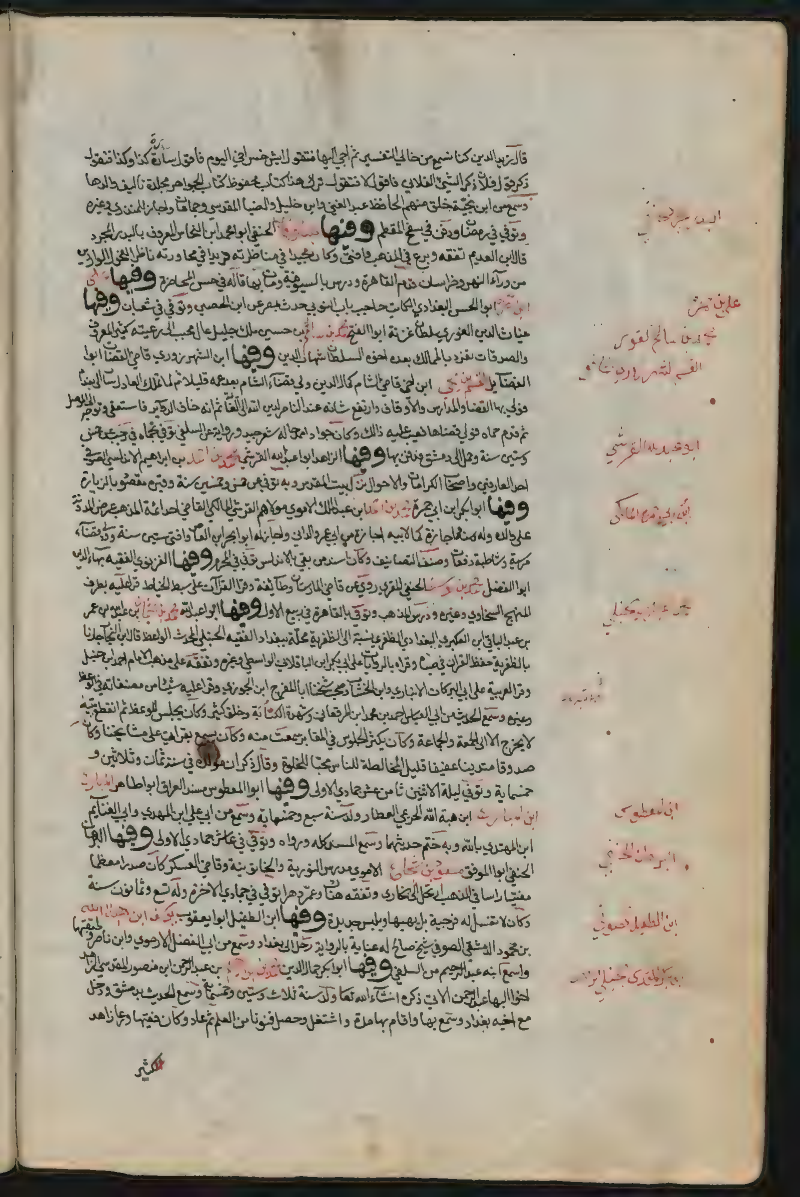 قال زين الدين كنا نسمع من خالي التفسير ثم اجي اليها فتقول ايش فسر اخي اليوم فاقول سورة كذا وكذا فتقول
ذكر قول فلان ذكر الشيء الفلاني فاقول لا فتقول ترك هذا كتاب محفوظ كتاب الجواهر مجلدة تاليف والدها
وسمع من ابن نجية خلق منهم الحافظ عبد الغني وابن خليل والضيا المقدسي وجماعات واجاز للمنذري وغيره
وتوفي في رمضان ودفن في سفح المقطم وفيها الحنفي ابو المحمد ابن النحاس المعروف بالبدر المجرد
قال ابن العديم تفقه وبرع في المذهب وافتى وكان مجيدا في مناظرته فريدا في محاورته ناظر الفحول الواردين
من وراء النهر وخراسان وقدم القاهرة ودرس بالسيوفية ومات بها قاله في حسن المحاضرة وفيها علي
ابو الحسن البغدادي الكاتب حاجب باب النوبي حدث بمصر عن ابن الحصين وتوفي في شعبان وفيها
غياث الدين الغوري سلطان غزنة ابو الفتح محمد بن حسين ملك جليل عادل محبب الى رعيته كثير المعروف
والصدقات تفرد بالممالك بعده اخوه السلطان شهاب الدين وفيها ابن الشهرزوري قاضي القضاة ابو
الفضايل القسم بن يحيى ابن اخي قاضي الشام كمال الدين ولي قضاء الشام بعد عمه قليلا ثم لما تملك العادل سار الى بغداد
فولي بها القضاء والمدارس والاوقاف وارتفع شانه عند الناصر لدين الله الى الغاية ثم انه خاف الدوائر فاستعفى وتوجه الى الموصل
ثم قدم حماه فولي قضاها فعيب عليه ذلك وكان جوادا له شعر جيد ورواية عن السلفي توفي بحماه في رجب عن خمس
وستين سنة وحمل الى دمشق فدفن بها وفيها الزاهد ابو عبد الله القرشي محمد بن احمد بن ابراهيم الاندلسي الصوفي
احد العارفين واصحاب الكرامات والاحوال نزل بيت المقدس وبه توفي عن خمس وخمسين سنة وقبره مقصود بالزيارة
وفيها ابو بكر ابن ابي جمرة محمد بن احمد ابن عبد الملك الاموي مولاهم القرشي المالكي القاضي احد ائمة المذهب عرض المدونة
على والده وله منه اجازة كما لابيه اجازة من ابي عمرو الداني واجاز له ابو بحر ابن العاص وافتى ستين سنة وولي قضاء
مرسية وشاطبة دفعات وصنف التصانيف وكان اسند من بقي بالاندلس توفي في المحرم وفيها الغزنوي الفقيه بهاء الدين
ابو الفضل محمد بن يوسف الحنفي المقري روى عن قاضي المارستان وطائفة وقرا القراءات على سبط الخياط قرا عليه بطرف
المنهج السخاوي وغيره ودرس المذهب وتوفي بالقاهرة في ربيع الاول وفيها ابو عبد الله بن علي بن عمر
بن عبد الباقي ابن العكبري البغدادي الظفري نسبة الى الظفرية محلة ببغداد الفقيه الحنبلي المحدث الواعظ قال ابن النجار جارنا
بالظفرية حفظ القران في صباه وقراه بالروايات على ابي بكر ابن الباقلاني الواسطي وغيره وتفقه على مذهب الامام احمد ابن حنبل
وقرا العربية على ابي البركات الانباري وابن الخشاب وصحب شيخنا ابا الفرج ابن الجوزي وقرا عليه شيئا من مصنفاته في الوعظ
وغيره وسمع الحديث من ابي العباس احمد بن محمد ابن المرقعاتي وشهدة الكاتبة وخلق كثير وكان يجلس للوعظ ثم انقطع في بيته
لا يخرج الا الى الجمعة والجماعة وكان يكثر الجلوس في المقابر سمعت منه وكان يسمع بقراءتي على مشايخنا وكان
صدوقا متدينا عفيفا قليل المخالطة للناس محبا للخلوة وقال ذكر ان مولده في سنة ثمان وثلاثين و
خمسماية وتوفي ليلة الاثنين ثامن عشر جمادي الاولى وفيها ابو المعطوس مسند العراق ابو طاهر المبارك
ابن المبارك ابن هبة الله الحريمي العطار ولد سنة سبع وخمسماية وسمع من ابي علي ابن المهدي وابي الغنايم
ابن المهتدي بالله وبه ختم حديثهما وسمع المسند كله ورواه وتوفي في عاشر جمادي الاولى وفيها البرهان
الحنفي ابو الموفق مسعود بن شجاع الاموي مدرس النورية والخاتونية وقاضي العسكر كان صدرا معظما
مفتيا راسا في المذهب ارتحل الى بخارى وتفقه هناك وعمر دهرا توفي في جمادي الاخرة وله تسع وثمانون سنة
وكان لا تغسل له فرجية بل يهبها ويلبس جديدة وفيها ابن الطفيل ابو يعقوب يوسف ابن هبة الله
بن محمود الدمشقي الصوفي شيخ صالح له عناية بالرواية رحل الى بغداد وسمع من ابي الفضل الارموي وابن ناصر وطبقتهما
واسمع ابنه عبد الرحيم من السلفي وفيها ابو بكر جمال الدين بن عبد الرحمن ابن منصور المقدسي الزاهد
اخو البها عبد الرحمن الاتي ذكره انشاء الله تعالى ولد سنة ثلاث وستين وخمسماية وسمع الحديث بدمشق ورحل
مع اخيه بغداد وسمع بها واقام بها مدة واشتغل وحصل فنونا من العلم ثم عاد وكان فقيها ورعا زاهدا
كثير
علي بن حمزة
محمد بن سالم الغوري
القسم الشهرزوري الشافعي
ابو عبد الله القرشي
ابن ابي جمرة المالكي
ابن المعطوس
البرهان الحنفي
ابن الطفيل الصوفي